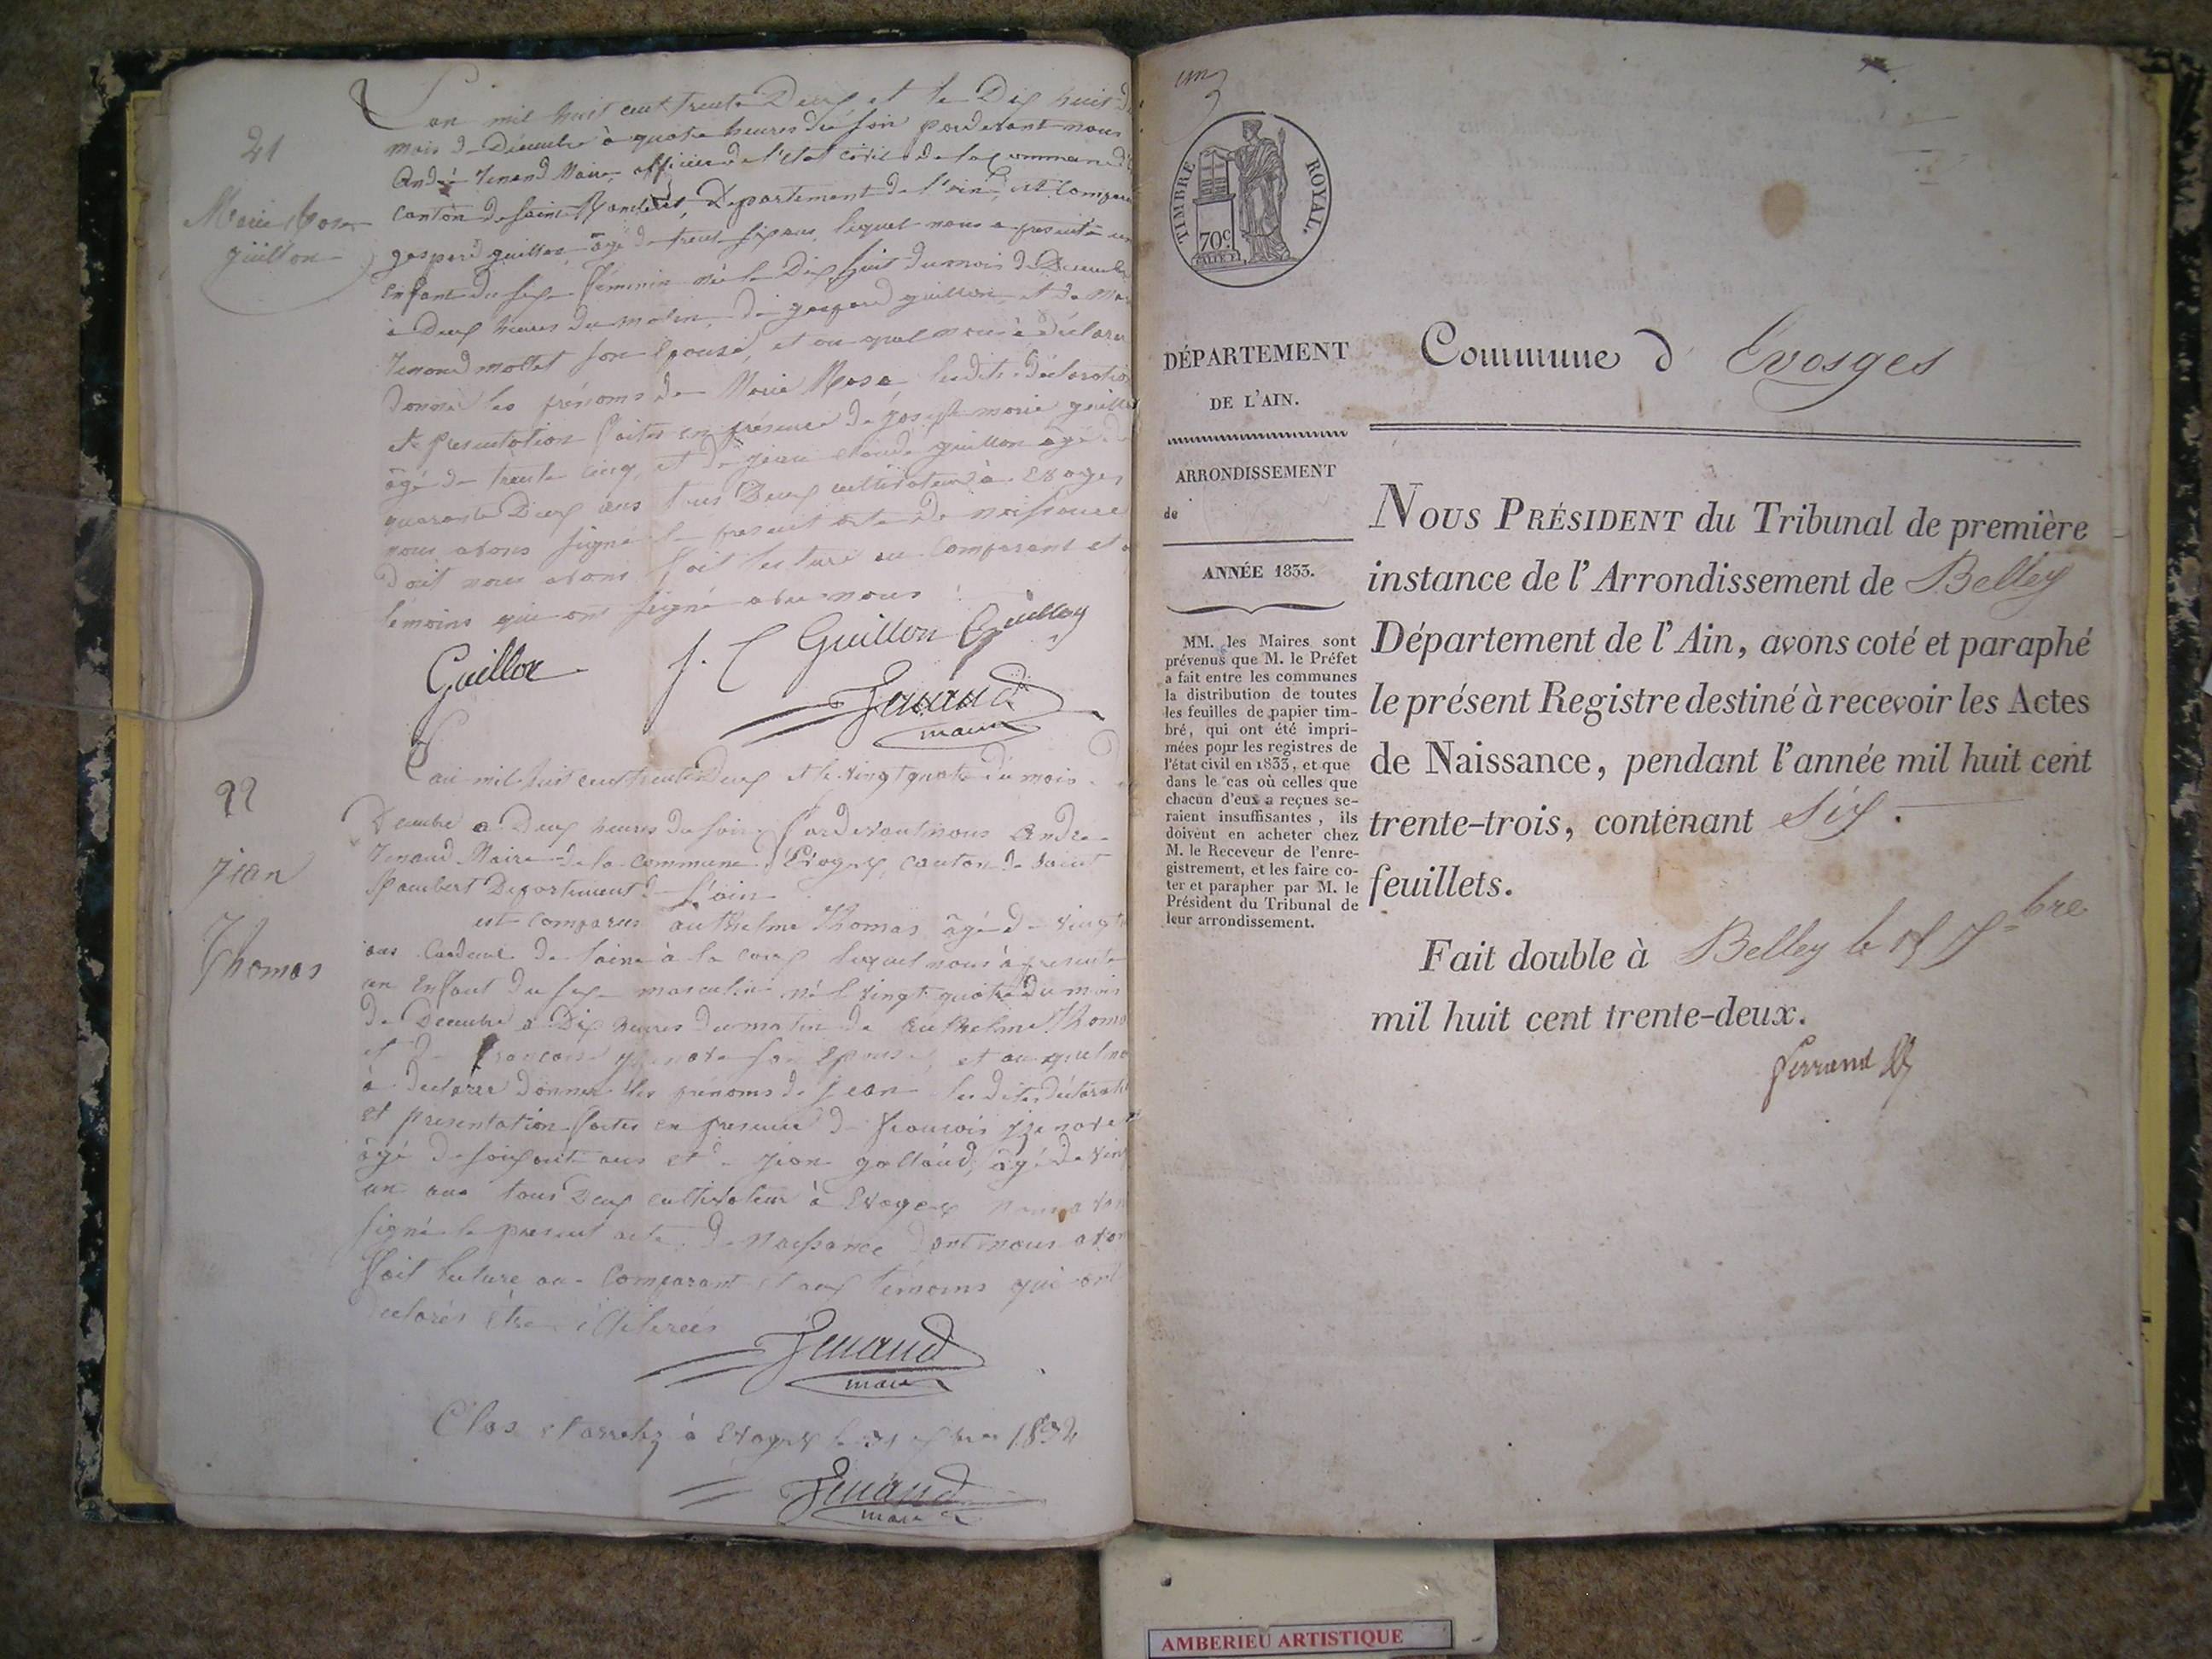 21
Marie Rose
guillon
L'an mil huit cent trente Deux et le Dix huit d
mois de Décembre à quatre heures du soir pardevant nous
André Tenand Maire, officier de l'état civil de la commune d'E
canton de Saint Rambert, Département de l'ain, est Compar
gaspard guillon âgé de trente six ans, lequel nous a présenté un
enfant du sexe féminin née le Dix huit du mois de Décembre
à Deux heures du matin, de gaspard guillon et de Ma
Tenand mollet son Epouse, et au quel nous à déclaré
donner les prénoms de Marie Rose, les dites déclaration
et présentation faites en présence de joseph marie guillon
âgé de trente cinq, et de jean claude guillon âgé de
quarante Deux ans tous Deux cultivateur à Evoges
nous avons signé le present acte de naissance
dont nous avons fait lecture au Comparant et
témoins qui ont signé avec nous
Guillon J. C Guillon Guillon
Tenand
maire
22
jean
Thomas
L'an mil huit cent trente Deux et le vingt quatre du mois
Décembre a Deux heures du soir Pardevant nous André
Tenand Maire de la commune d'Evoges, canton de Saint
Rambert Département de l'ain
est comparus anthelme Thomas âgé de vingt
ans Cardeur de laine à la coux lequel nous à presenté
un Enfant du sexe masculin né le vingt quatre du mois
de Decembre a Dix heures du matin de anthelme Thoma
et de francoise son Epouse, et au quel no
à declarer donner les prénoms de jean les dites déclarati
et presentation faites en presence de francois
âgé de soixante ans et de jean gallaud, âgé de vin
un ans tous Deux cultivateur à Evoges nous avon
signé le present acte de Naissance dont nous avon
fait lecture au Comparant et aux témoins qui ont
declarés être illiterées
Tenand
maire
Clos et arretez à Evoges le 31 Xbre 1832
Tenand
maire
un
TIMBRE ROYAL.
70c
DÉPARTEMENT
DE L'AIN.
ARRONDISSEMENT
de
ANNÉE 1833.
MM. les Maires sont
prévenus que M. le Préfet
a fait entre les communes
la distribution de toutes
les feuilles de papier tim-
bré, qui ont été impri-
mées pour les registres de
l'état civil en 1833, et que
dans le cas où celles que
chacun d'eux a reçues se-
raient insuffisantes, ils
doivent en acheter chez
M. le Receveur de l'enre-
gistrement, et les faire co-
ter et parapher par M. le
Président du Tribunal de
leur arrondissement.
Commune d' Evosges
NOUS PRÉSIDENT du Tribunal de première
instance de l'Arrondissement de Belley
Département de l'Ain, avons coté et paraphé
le présent Registre destiné à recevoir les Actes
de Naissance, pendant l'année mil huit cent
trente-trois, contenant Six.
feuillets.
Fait double à Belley le bre
mil huit cent trente-deux.
AMBERIEU ARTISTIQUE